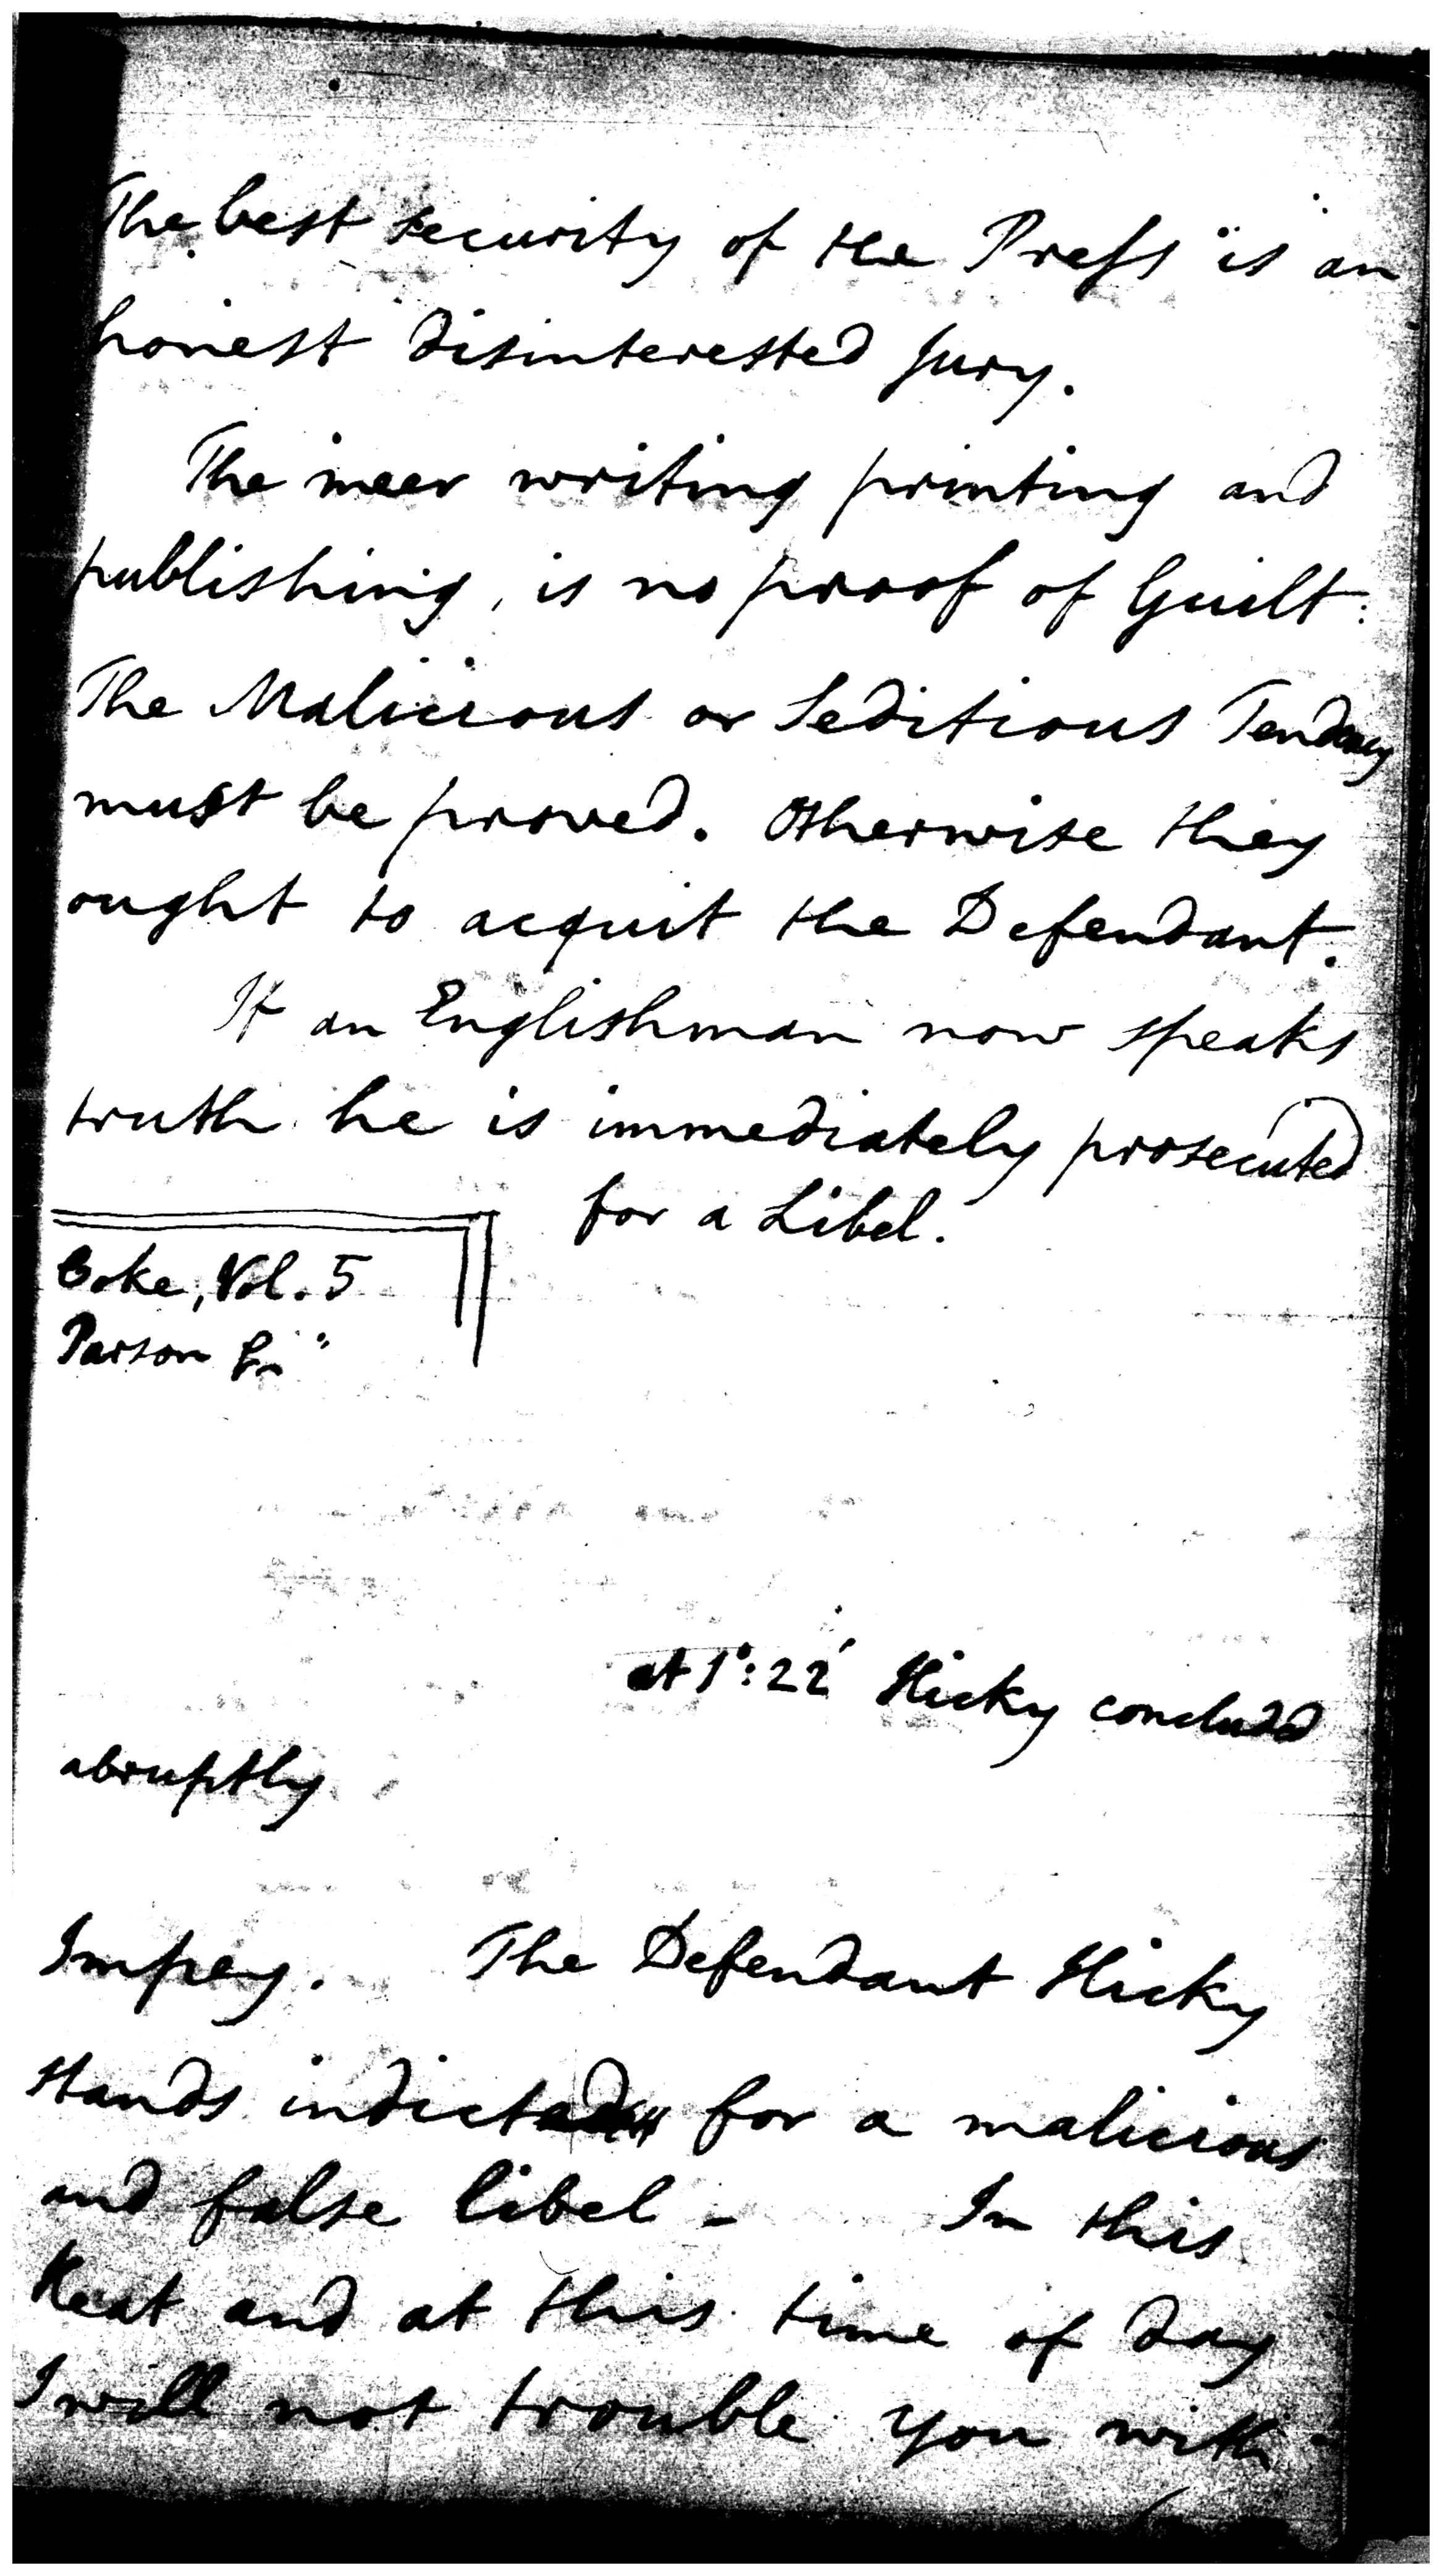 The best security of the Press is an
honest disinterested Jury.
The meer writing printing and
publishing, is no proof of Guilt:
The Malicious or Seditious Tendency
must be proved. Otherwise they
ought to acquit the Defendant.
If an Englishman now speaks
truth he is immediately prosecuted
for a Libel.
Coke, Vol. 5
Parson
at 1°:22' Hicky concluded
abruptly
Impey. The Defendant Hicky
stands indicted for a malicious
and false libel - In this
Heat and at this time of day
I will not trouble you with